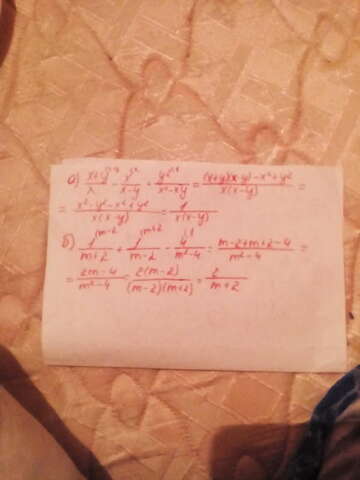 а) x+y/x - x/x-y + y²/x²-xy = (x+y)(x-y)-x²+y²/x(x-y) =
= x²-y²-x²+y²/x(x-y) = 1/x(x-y)
б) 1/m+2 + 1/m-2 - 4/m²-4 = m-2+m+2-4/m²-4 =
= 2m-4/m²-4 = 2(m-2)/(m-2)(m+2) = 2/m+2